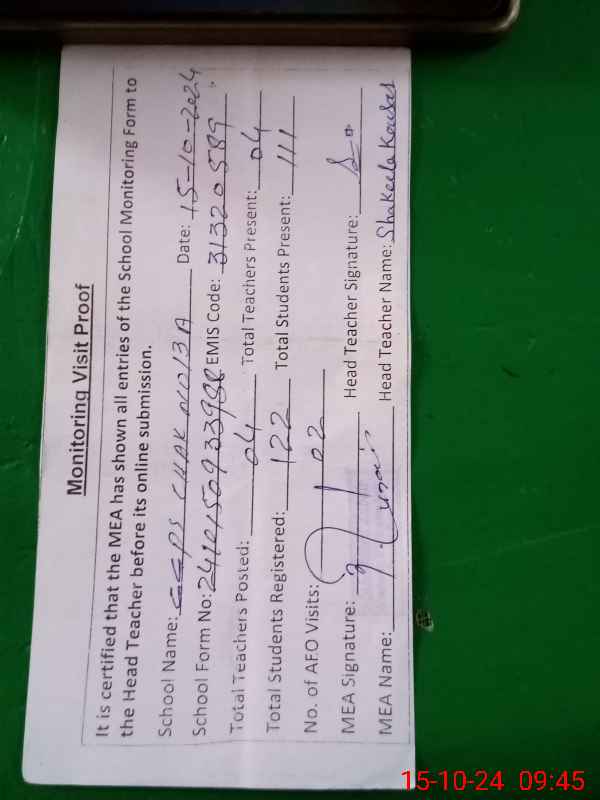 Monitoring Visit Proof
It is certified that the MEA has shown all entries of the School Monitoring Form to
the Head Teacher before its online submission.
School Name: GGPS CHAK NO 13 A Date: 15-10-2024
School Form No: EMIS Code: 31320589
Total Teachers Posted: 04 Total Teachers Present: 04
Total Students Registered: 122 Total Students Present: 111
No. of AEO Visits: 02
MEA Signature: Head Teacher Signature:
MEA Name: Head Teacher Name: Shakeela Kousar
15-10-24 09:45